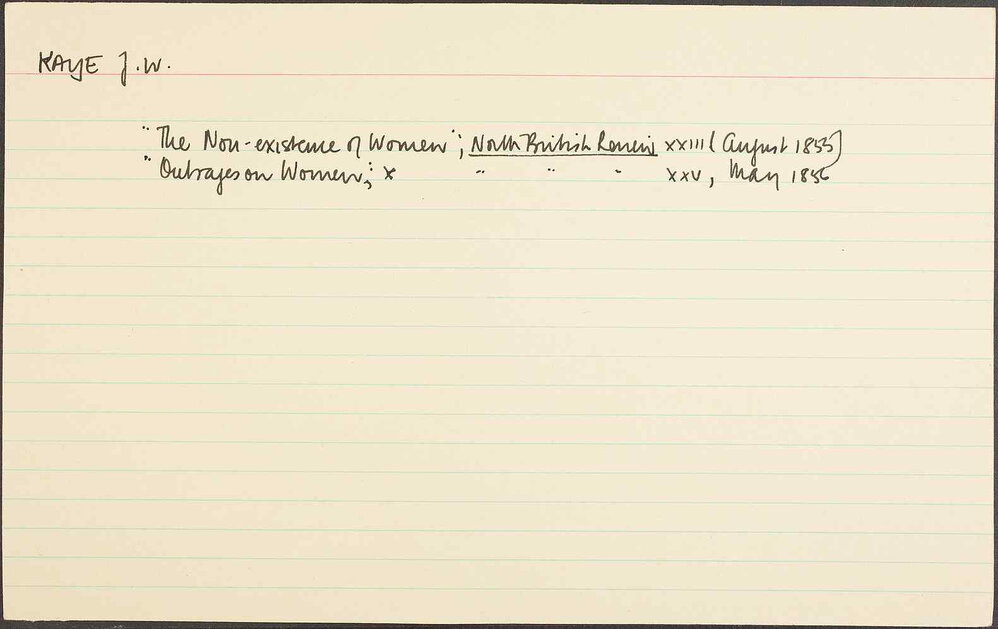 KAYE J.W.
"The Non-existence of Women"; North British Review XXIII (August 1855)
"Outrages on Women"; x " " " XXV, May 1856